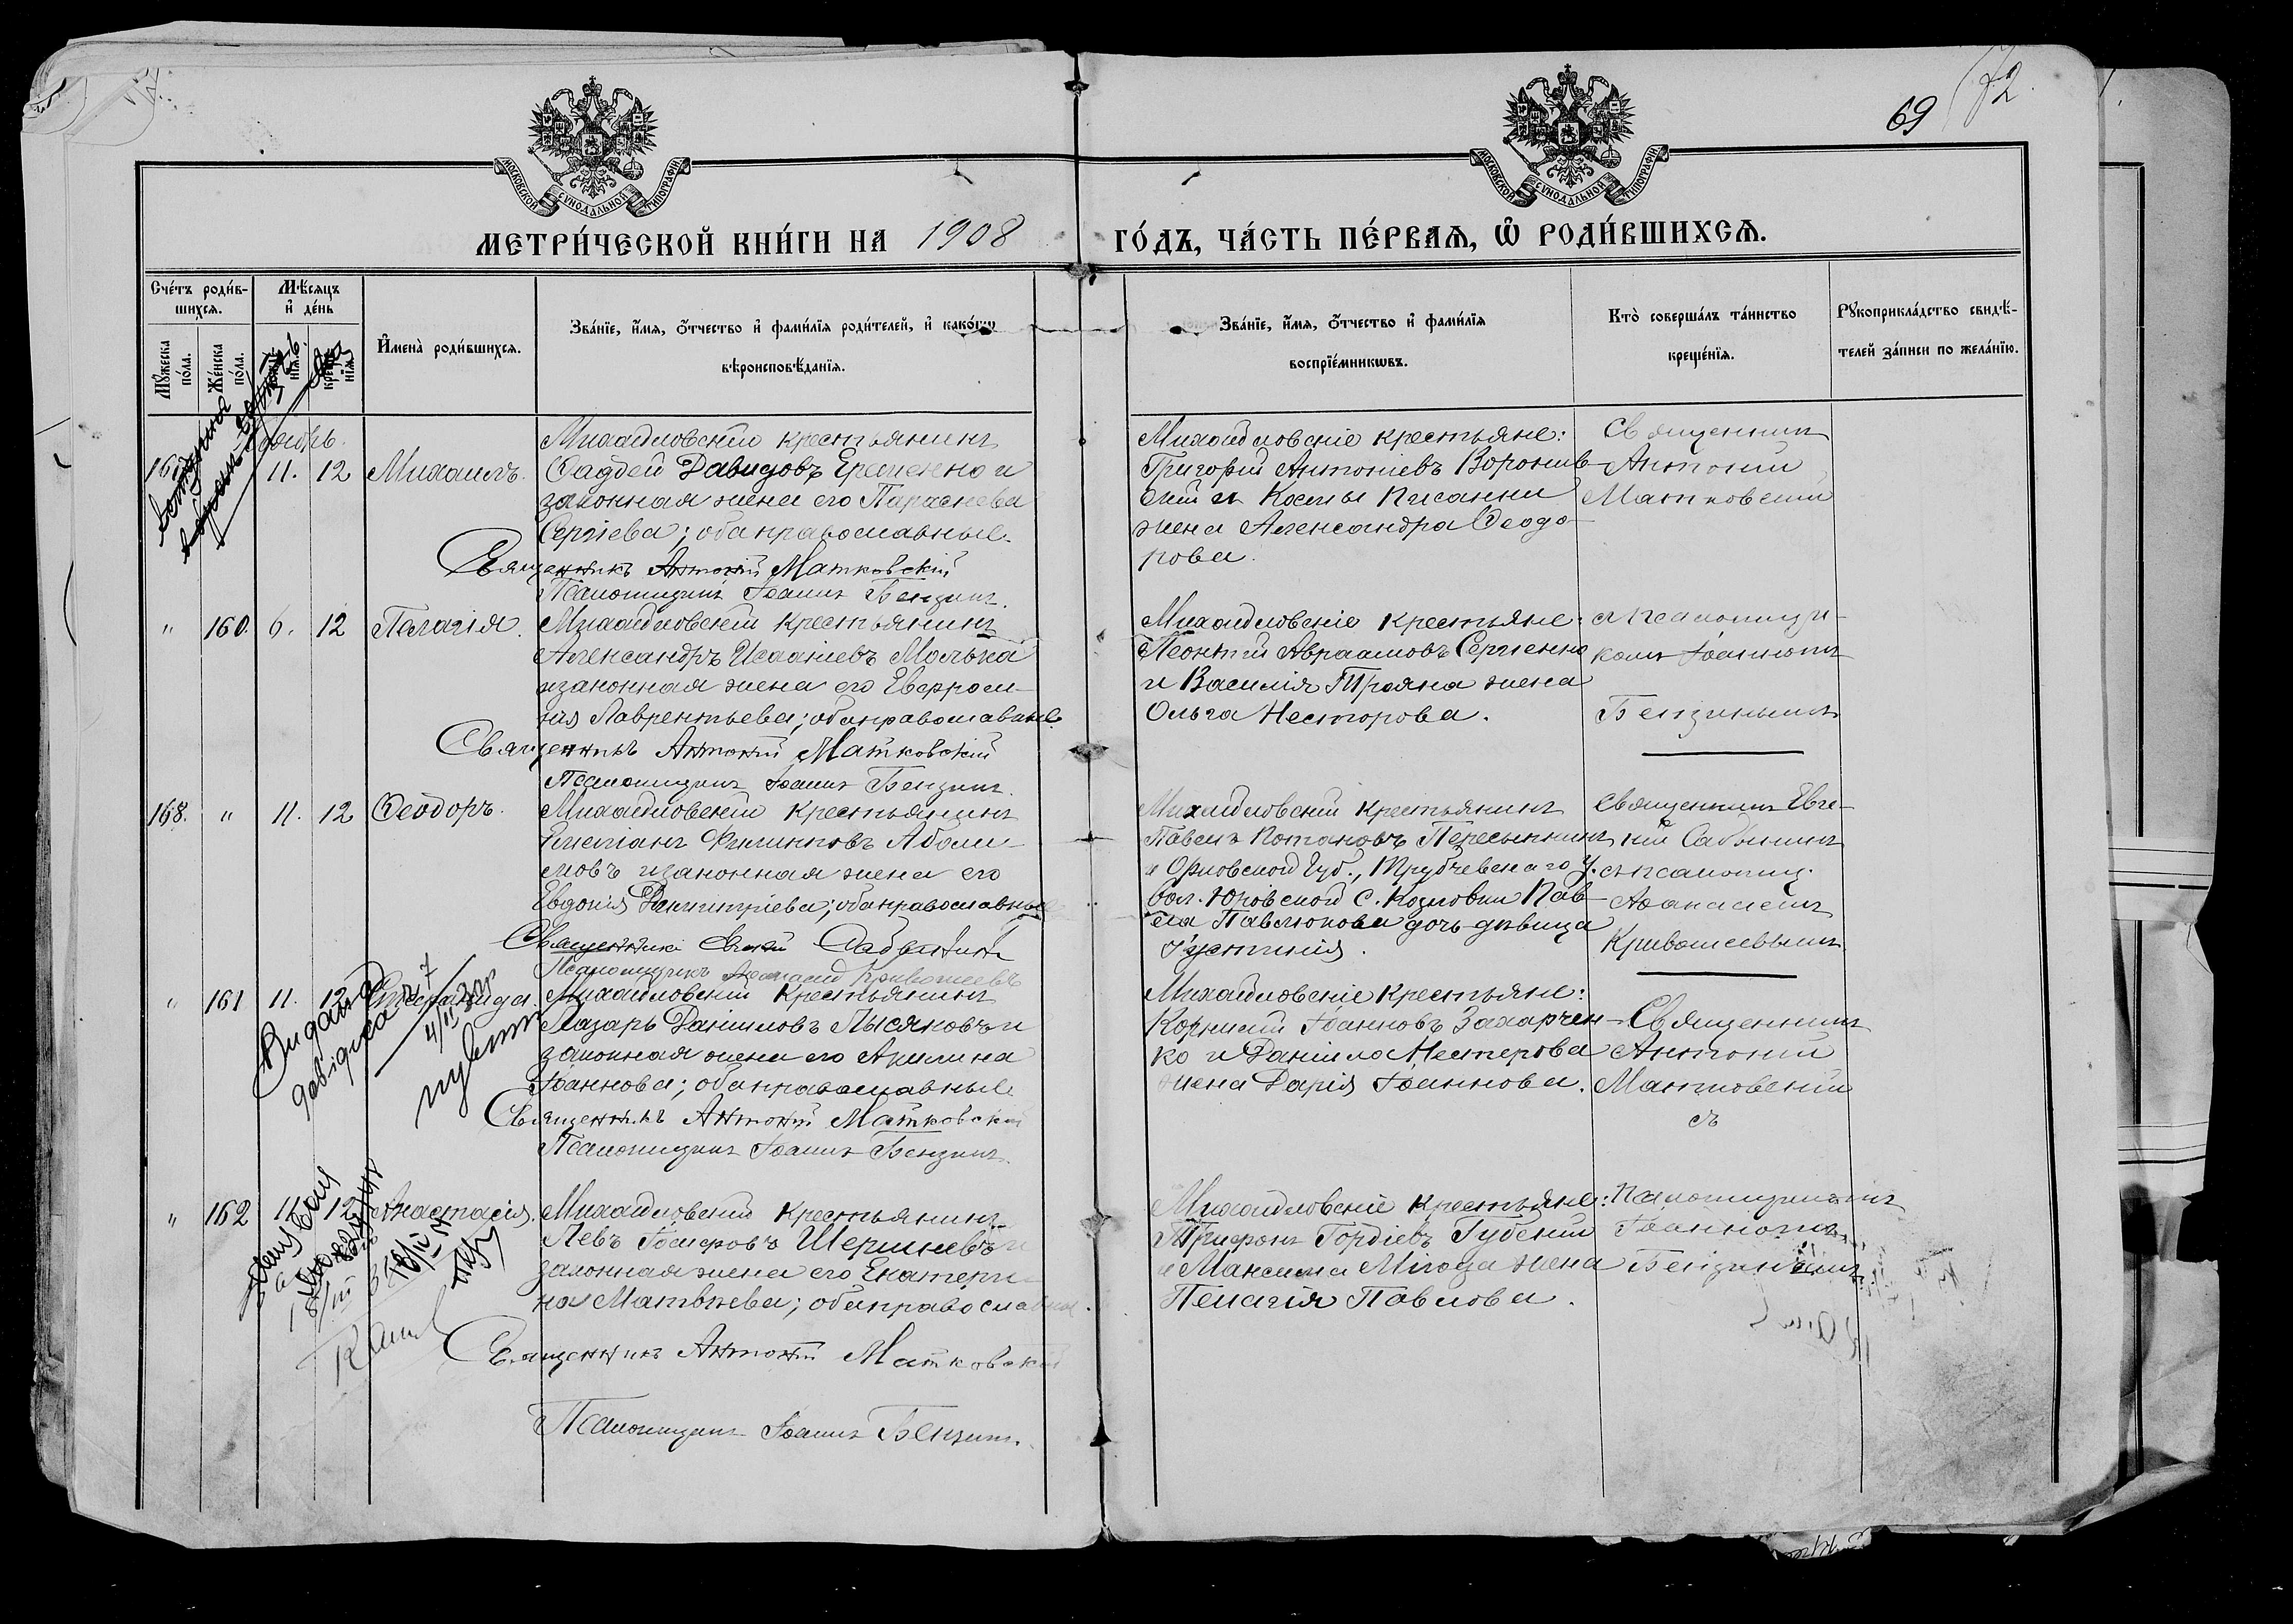 69
72.
МОСКОВСКОЙ СѴНОДАЛЬНОЙ ТИПОГРАФІИ
МОСКОВСКОЙ СѴНОДАЛЬНОЙ ТИПОГРАФІИ
МЕТРИ́ЧЕСКОЙ КНИ́ГИ НА 1908
ГО́ДЪ, ЧА́СТЬ ПЕ́РВАѦ, Ѽ РОДИ́ВШИХСѦ.
Сче́тъ роди́в-
шихсѧ.
Мꙋ́жеска по́ла.
Же́нска по́ла.
Мѣ́сѧцъ
и҆ де́нь
И҆мена̀ роди́вшихсѧ.
Зва́нїе, и҆́мѧ, ѻ҆́тчество и҆ фами́лїѧ роди́телей, и҆ како́гѡ
вѣроисповѣ́данїѧ.
Зва́нїе, и҆́мѧ, ѻ҆́тчество и҆ фами́лїѧ
воспрїе́мникѡвъ.
Кто̀ соверша́лъ та́инство
креще́нїѧ.
Рꙋкоприкла́дство свидѣ́-
телей за́писи по жела́нїю.
11. 12 Михаилъ.
Михайловскій крестьянинъ
Ѳаддей Давидовъ Ерченко и
законная жена его Параскева
Сергіева; оба православные.
Священникъ Антоній Матковскій
Псаломщикъ Іоаннъ Бензинъ.
Михайловскіе крестьяне:
Григорій Антоніевъ
и Космы Писанки
жена Александра Ѳеодо-
рова.
Священникъ
Антоній
Матковскій
" 160. 6. 12 Пелагія.
Михайловскій крестьянинъ
Александръ Исаакіевъ Молька
и законная жена его Евфроси-
нія Лаврентьева; оба православные
Священникъ Антоній Матковскій
Псаломщикъ Іоаннъ Бензинъ.
Михайловскіе крестьяне:
Леонтій Авраамовъ Сергіенко
и Василія Трояна жена
Ольга Несторова.
съ псаломщи-
комъ Іоанномъ
Бензинымъ
168. " 11. 12 Ѳеодоръ.
Михайловскій крестьянинъ
Емеліанъ Филипповъ Аболи-
мовъ и законная жена его
Евдокія Димитріева; оба православные
Священникъ Сабынинъ
Псаломщикъ Аѳанасій Кривошеевъ
Михайловскій крестьянинъ
Павелъ Потаповъ Пересыпкинъ
и Орловской Губ., Трубчевскаго у.
вол. Юровской с. Козловки Пав-
ла Павлюкова дочь дѣвица
Іустинія.
Священникъ Евге-
ній Сабынинъ
съ псаломщ.
Аѳанасіемъ
Кривошеевымъ.
" 161 11. 12
Михайловскій крестьянинъ
Лазарь Даніиловъ Лысяковъ и
законная жена его Акилина
Іоаннова; оба православные
Священникъ Антоній Матковскій
Псаломщикъ Іоаннъ Бензинъ.
Михайловскіе крестьяне:
Корнилій Іоанновъ Захарчен-
ко и Даніила Нестерова
жена Дарія Іоаннова.
Священникъ
Антоній
Матковскій
съ
" 162 11 12 Анастасія.
Михайловскій крестьянинъ
Левъ Іосифовъ Шершневъ и
законная жена его Екатери-
на Матвѣева; оба православные.
Священникъ Антоній Матковскій
Псаломщикъ Іоаннъ Бензинъ.
Михайловскіе крестьяне:
Трифонъ Гордіевъ Губскій
и Максима Мігоца жена
Пелагія Павлова.
Псаломщикомъ
Іоанномъ
Бензинымъ.